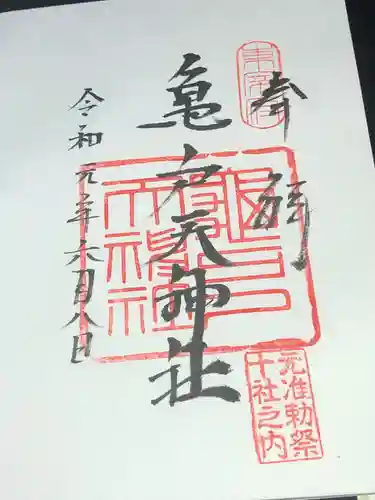 奉拝
東宰府
亀戸天神社
亀戸天神社
令和元年六月八日
元准勅祭
十社之内